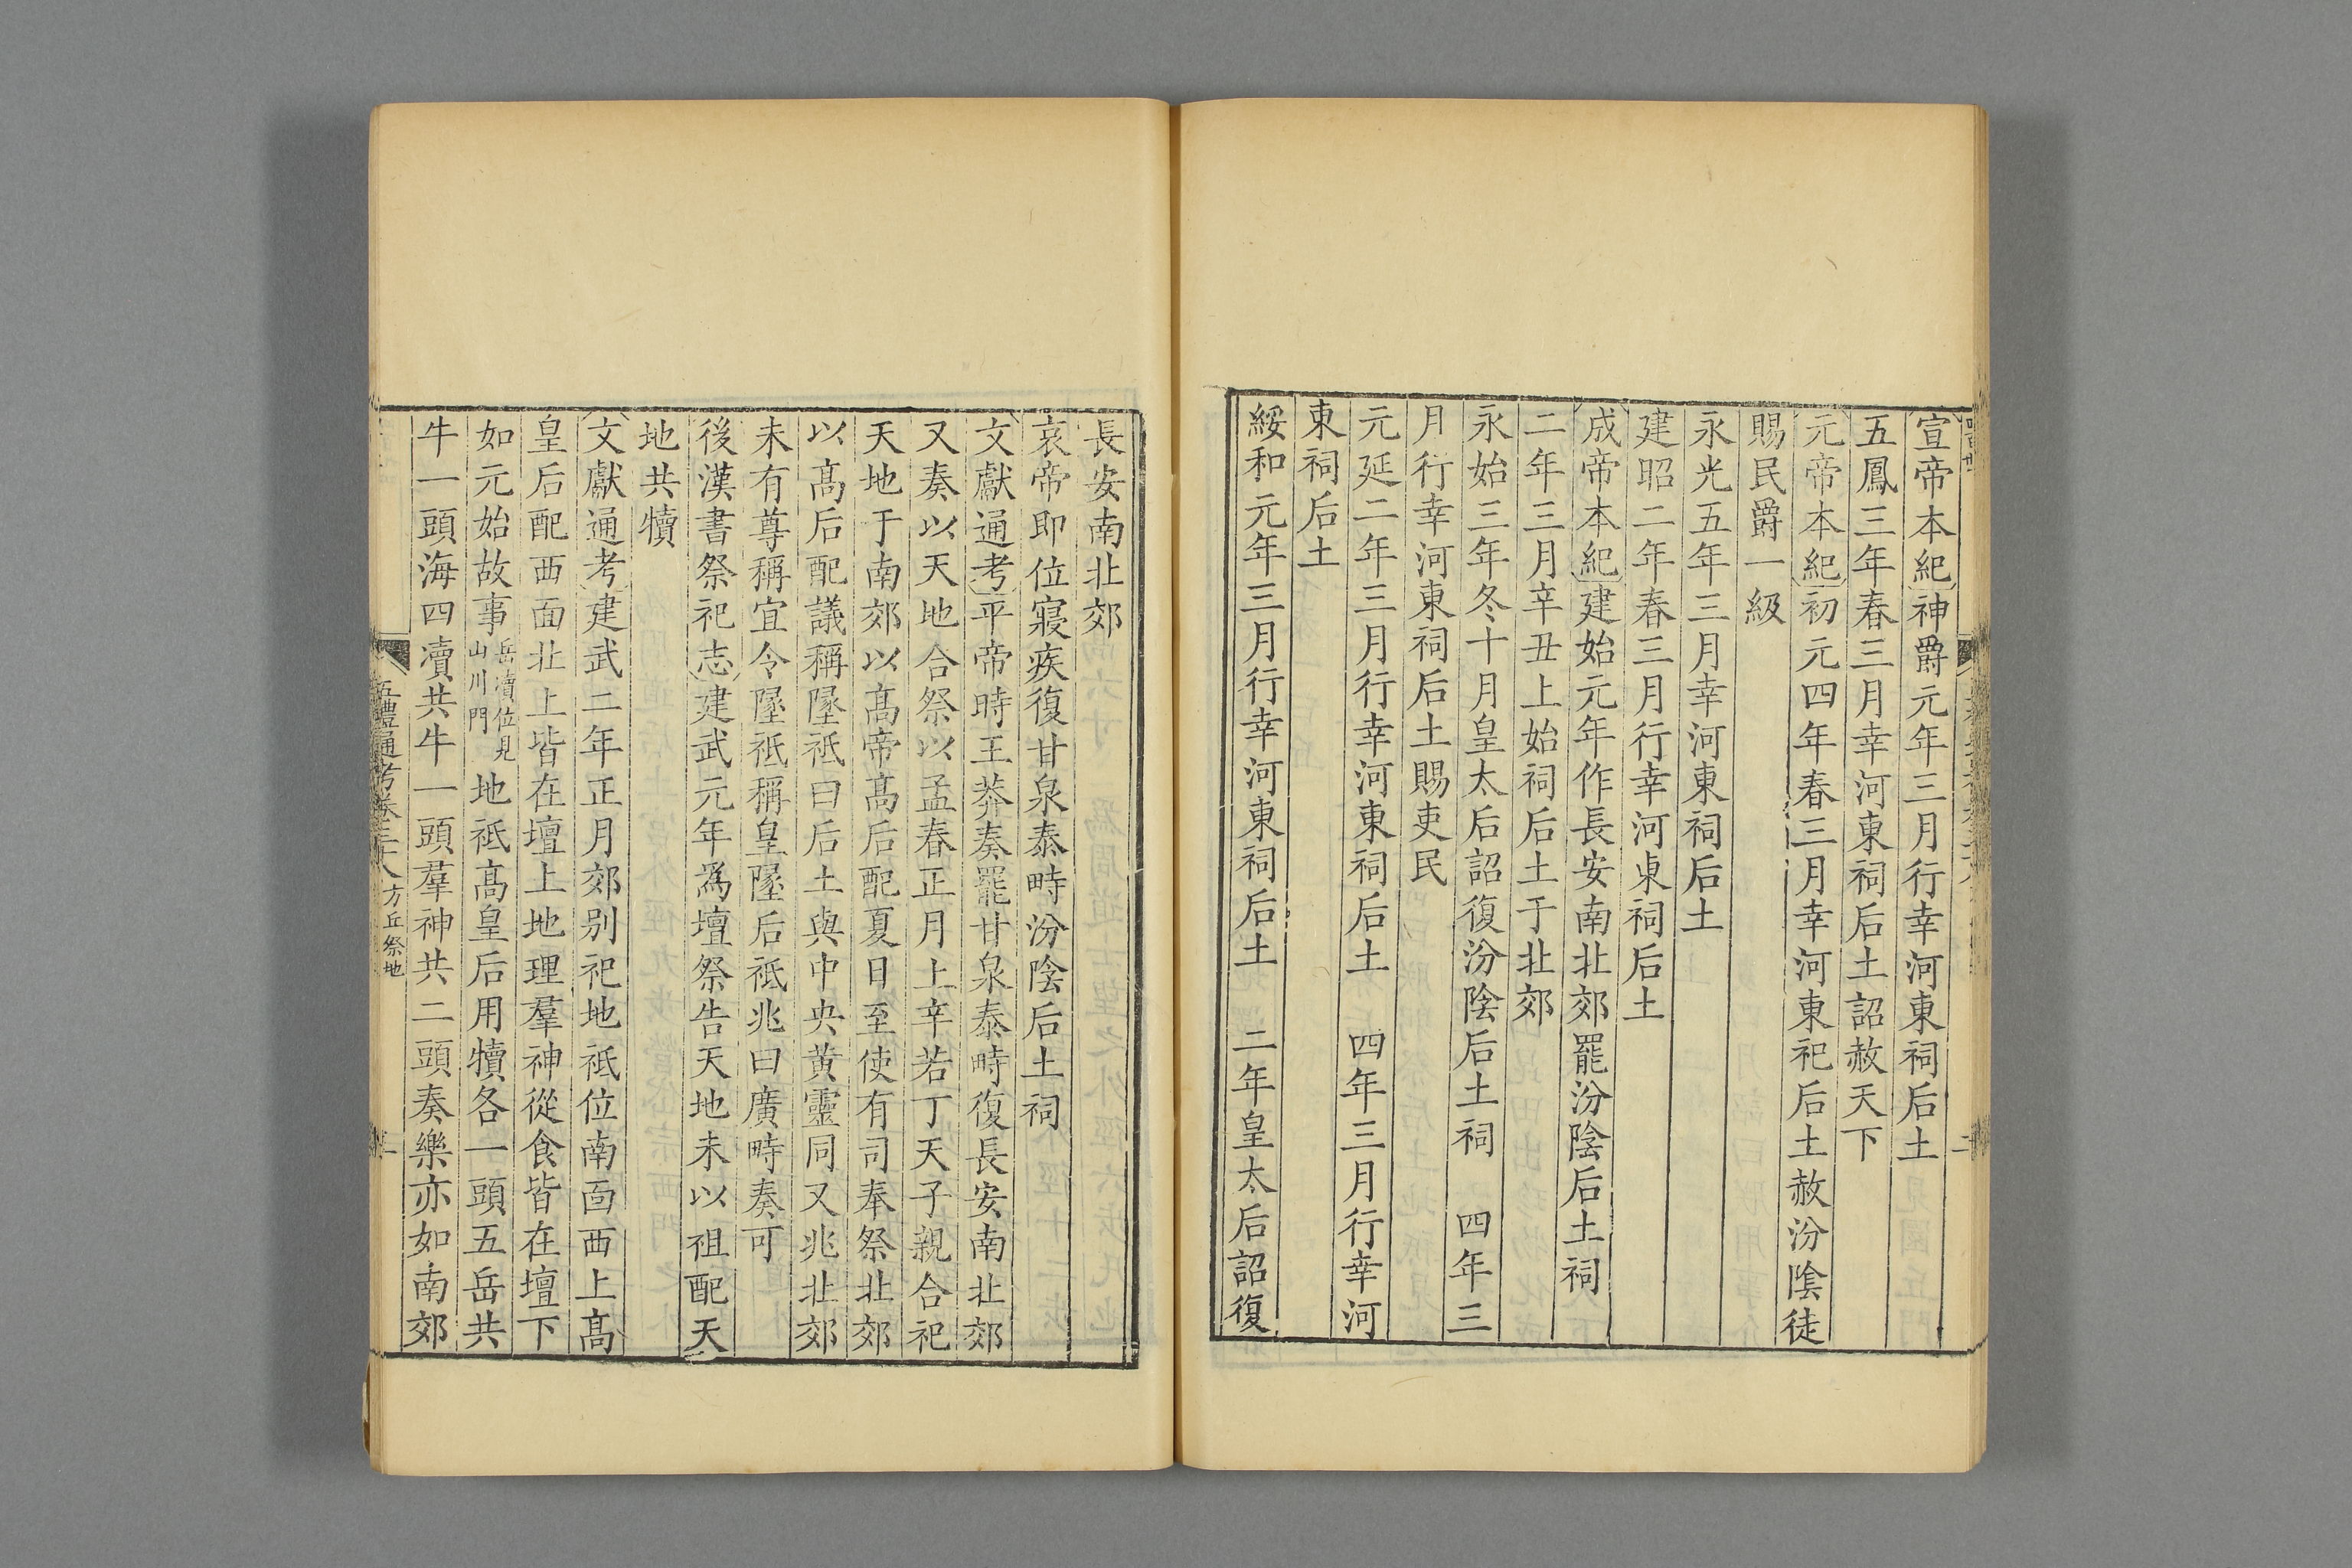 宣帝本紀神爵元年三月行幸河東祠后土
五鳳三年春三月幸河東祠后土詔赦天下
元帝本紀初元四年春三月幸河東祀后土赦汾隂徒
賜民爵一級
永光五年三月幸河東祠后土
建昭二年春三月行幸河東祠后土
成帝本紀建始元年作長安南北郊罷汾陰后土祠
二年三月辛丑上始祠后土于北郊
永始三年冬十月皇太后詔復汾陰后土祠　四年三
月行幸河東祠后土賜吏民
元延二年三月行幸河東祠后土　四年三月行幸河
東祠后土
綏和元年三月行幸河東祠后土　二年皇太后詔復
長安南北郊
哀帝即位寢疾復甘泉泰畤汾陰后土祠
文獻通考平帝時王莽奏罷甘泉泰畤復長安南北郊
又奏以天地合祭以孟春正月上辛若丁天子親合祀
天地于南郊以髙帝髙后配夏日至使有司奉祭北郊
以髙后配議稱墬祇曰后土與中央黄靈同又兆北郊
未有尊稱宜令墬祇稱皇墬后祇兆曰廣畤奏可
後漢書祭祀志建武元年爲壇祭告天地未以祖配天
地共犢
文獻通考建武二年正月郊别祀地祇位南靣西上髙
皇后配西面北上皆在壇上地理羣神從食皆在壇下
如元始故事岳瀆位見山川門地祇髙皇后用犢各一頭五岳共
牛一頭海四瀆共牛一頭羣神共二頭奏樂亦如南郊
五禮通考卷三十八 方丘祭地